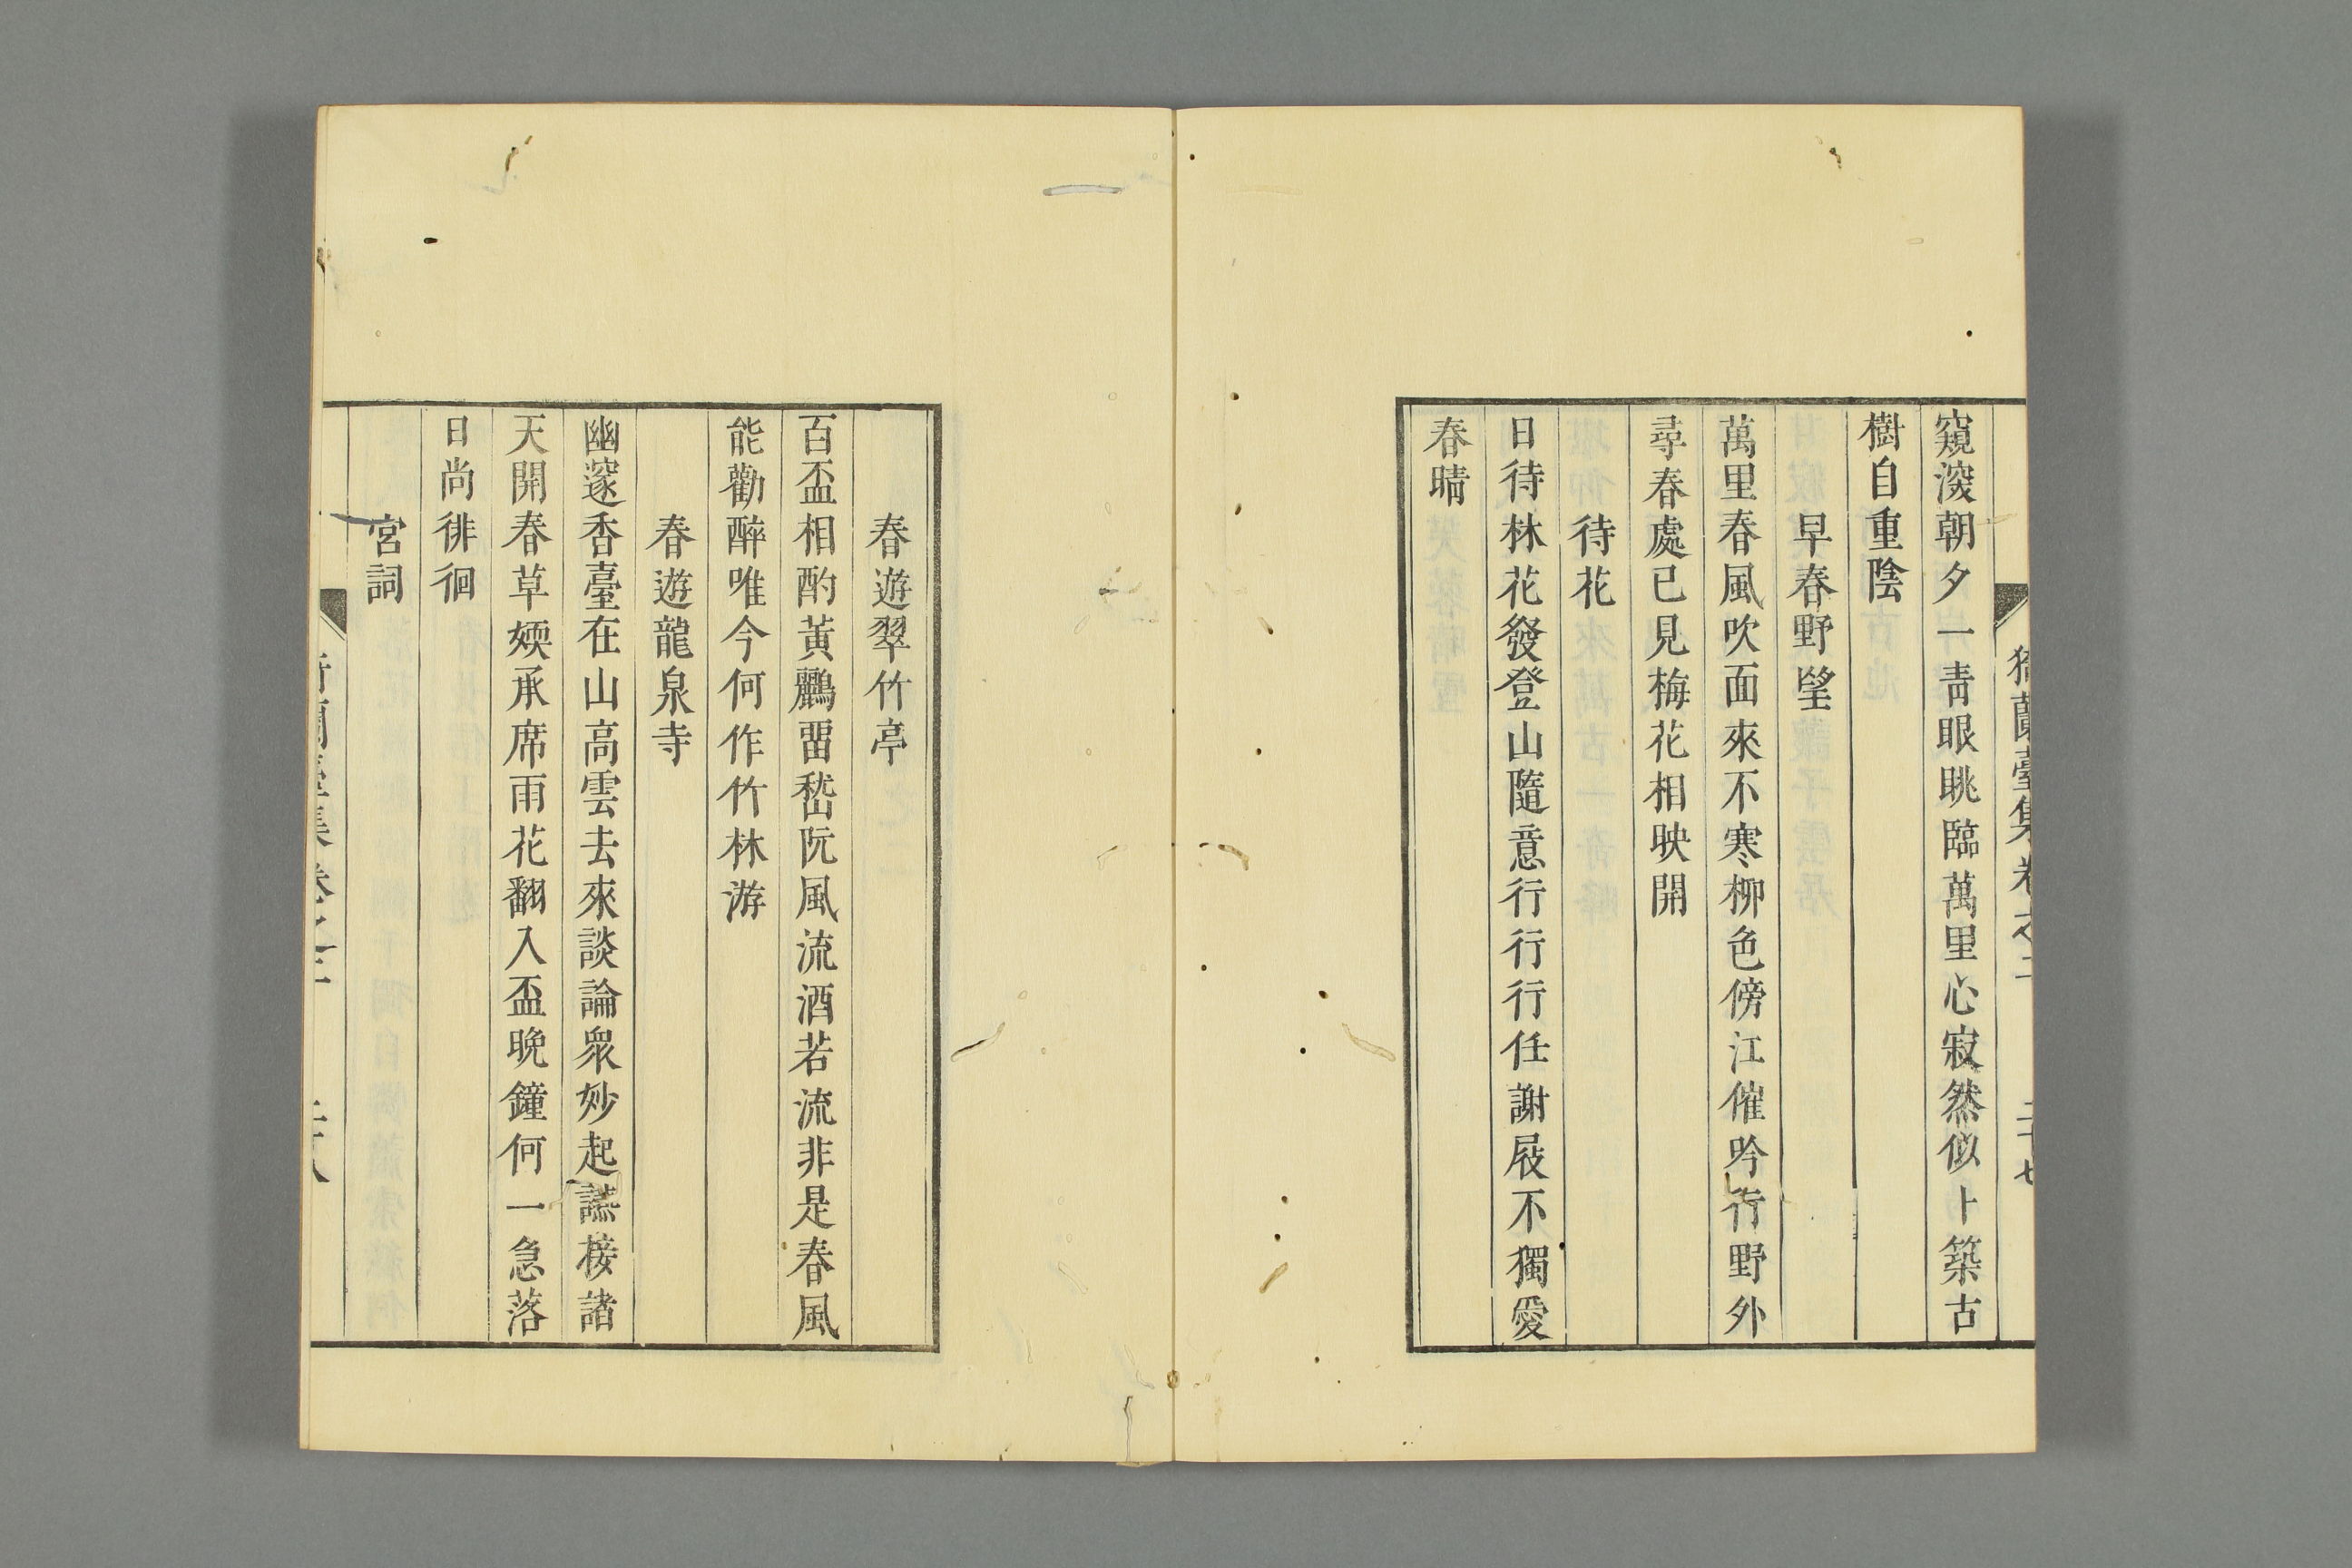 猗蘭臺集卷之二
二十七
窺深朝夕一靑眼眺臨萬里心寂然似卜築古
樹自重陰
早春野望
萬里春風吹面來不寒柳色傍江催吟行野外
尋春處已見梅花相映開
待花
日待林花發登山隨意行行行任謝屐不獨愛
春晴
春遊翠竹亭
百盃相酌黃鸝畱嵆阮風流酒若流非是春風
能勸醉唯今何作竹林游
春遊龍泉寺
幽邃香臺在山高雲去來談論衆妙起讌接諸
天開春草媆承席雨花翻入盃晩鐘何一急落
日尚徘徊
宮詞